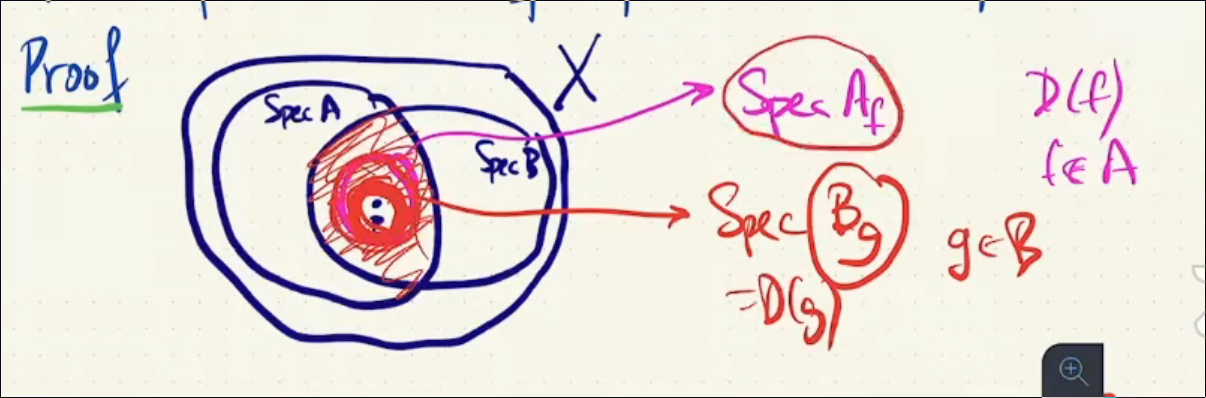 Proof
X
Spec A
Spec B
Spec A_f
D(f)
f ∈ A
Spec B_g
g ∈ B
= D(g)